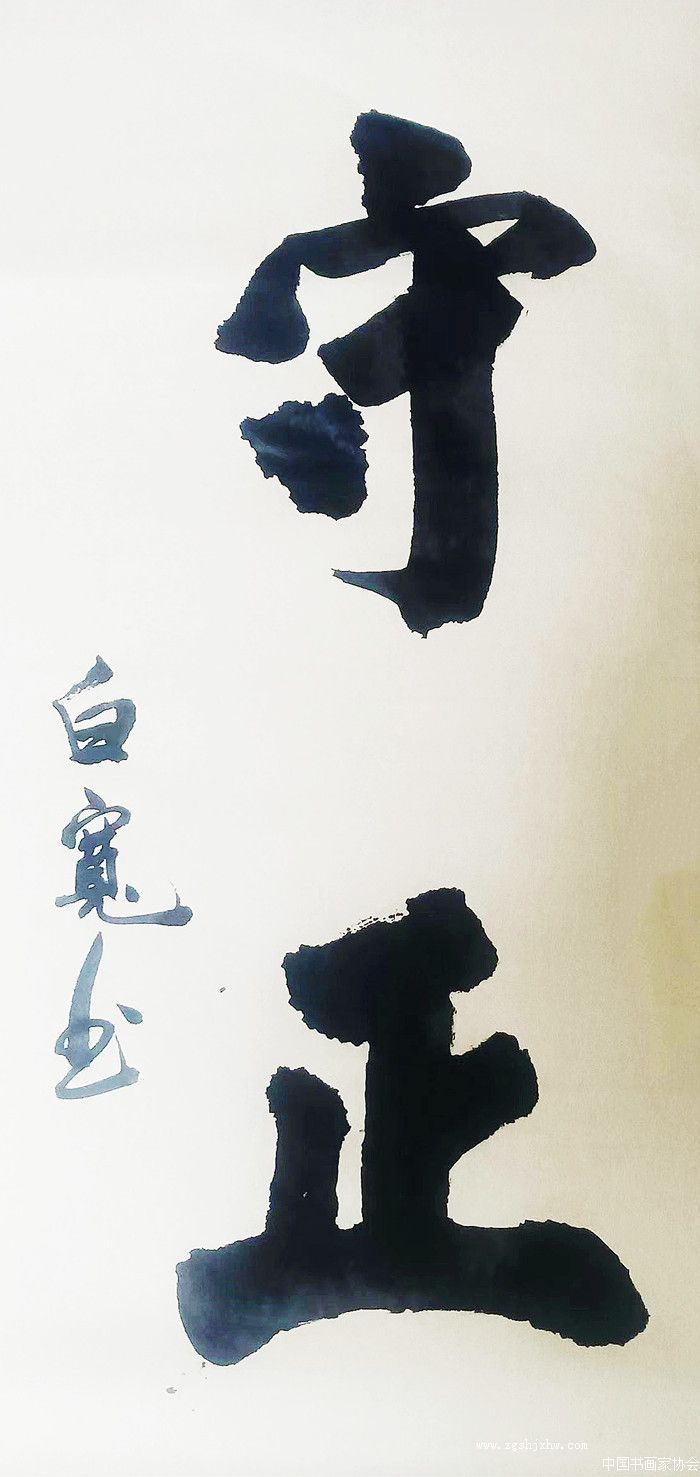 守正
白寬书
www.zgshjxhw.com
中国书画家协会